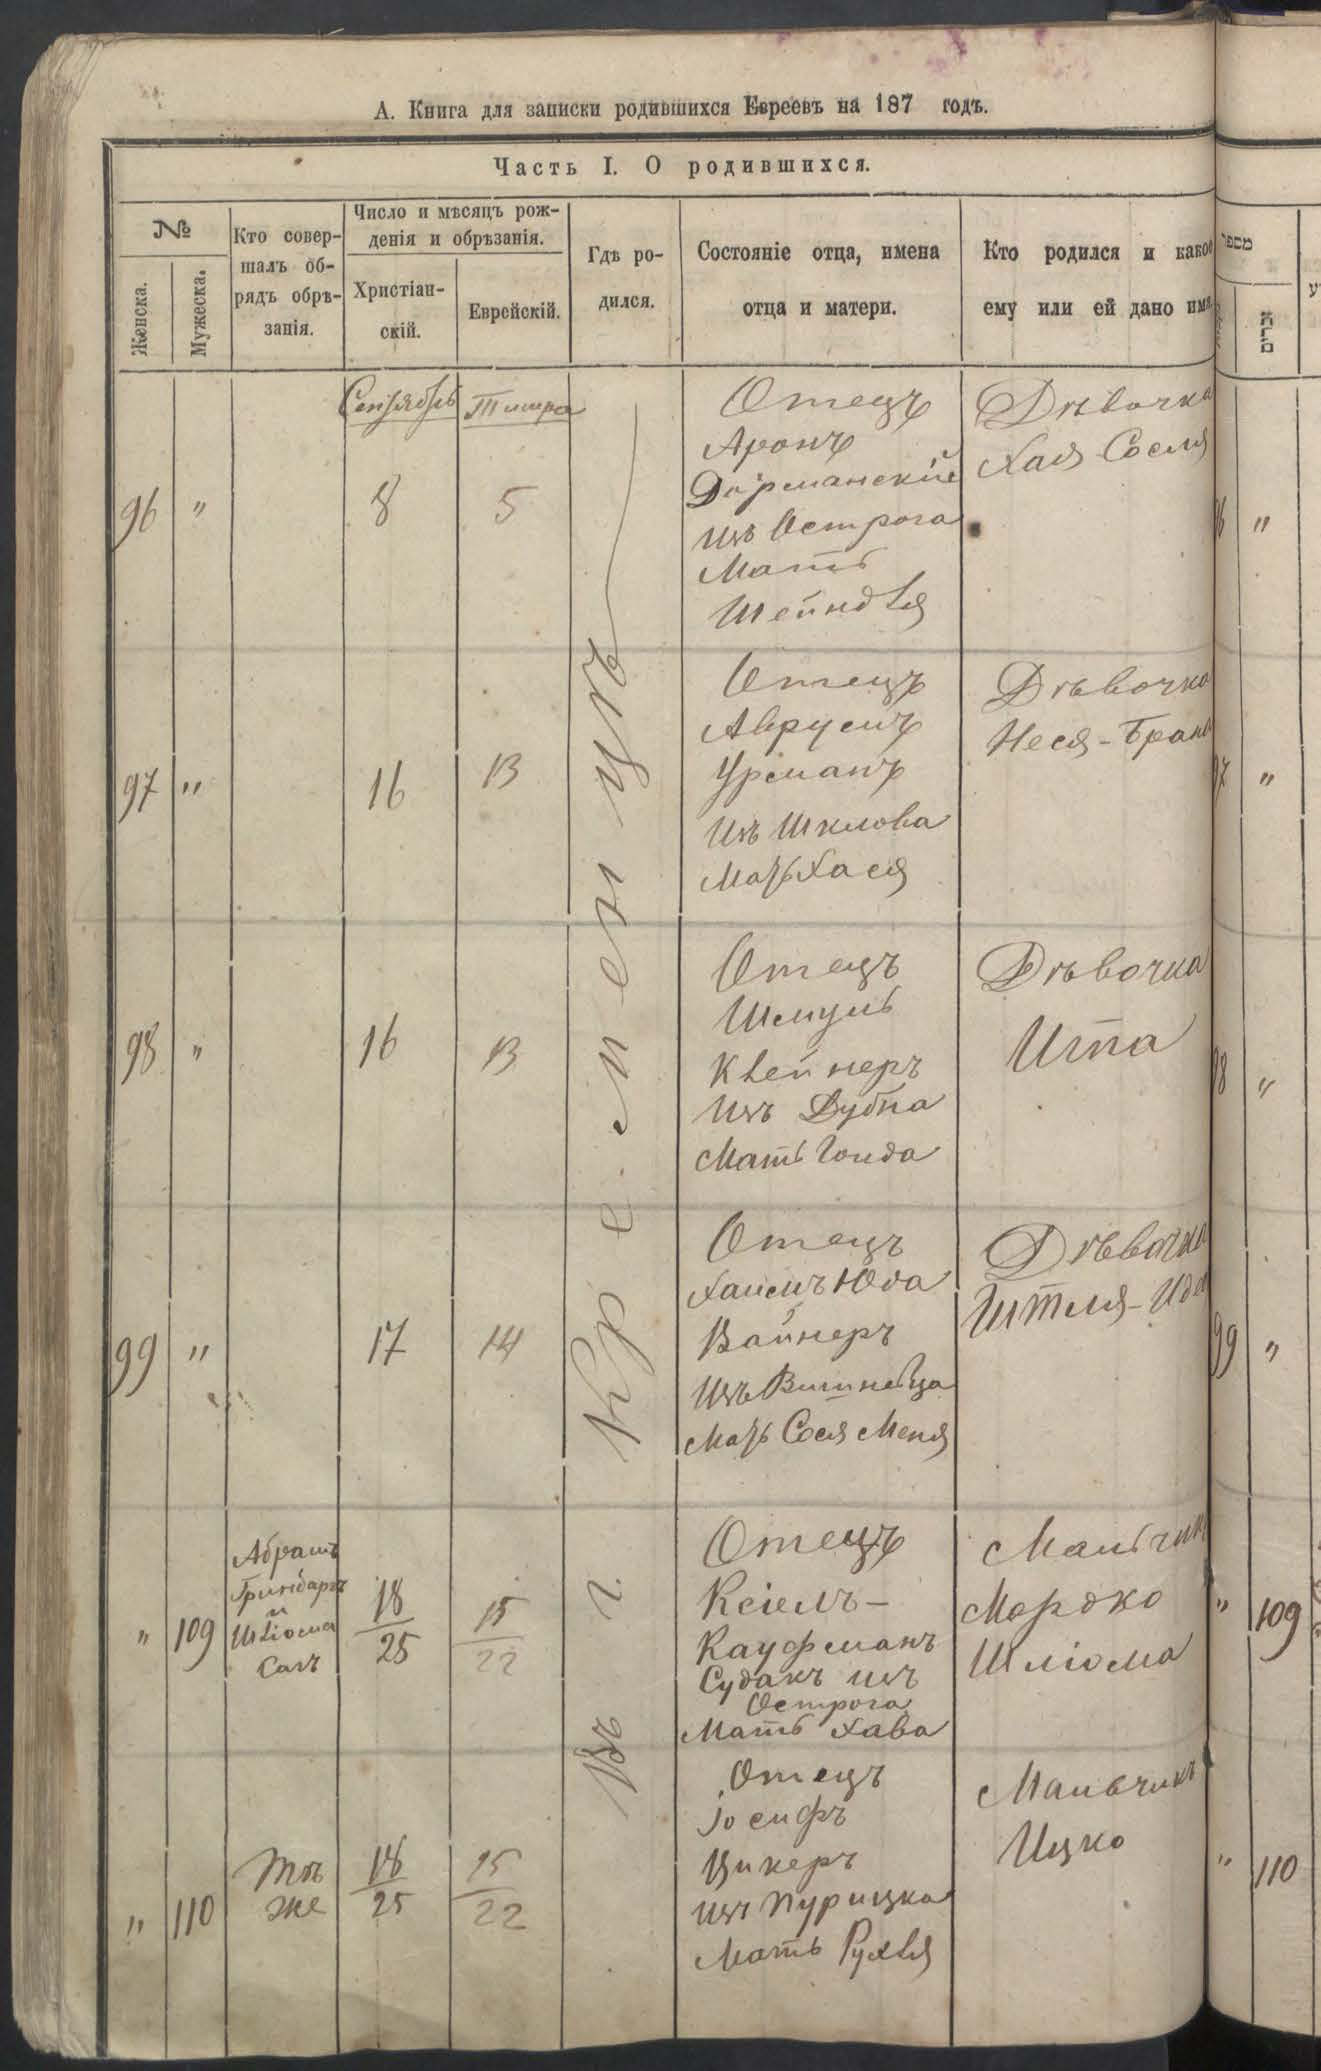 А. Книга для записки родившихся Евреевъ на 187 годъ.
Часть I. О родившихся.
№
Женска.
Мужеска.
Кто совер-
шалъ об-
рядъ обрѣ-
занія.
Число и мѣсяцъ рож-
денія и обрѣзанія.
Христіан-
скій.
Еврейскій.
Гдѣ ро-
дился.
Состояніе отца, имена
отца и матери.
Кто родился и какое
ему или ей дано имя.
מספר
זכרים
Сентябрь Тишра
Въ г. Кременцѣ
96 " 8 5
Отецъ
Аронъ
Дорманскій
изъ Острога
Мать
Шейндля
Дѣвочка
Хая Сосля
97 " 16 13
Отецъ
Аврумъ
Урманъ
изъ Шклова
Мать Хася
Дѣвочка
Неся-Брана
98 " 16 13
Отецъ
Шмуль
Клейнеръ
изъ Дубна
Мать Голда
Дѣвочка
Ита
99 " 17 14
Отецъ
Хаимъ Юда
Вайнеръ
изъ Вишневца
Мать Сося Меня
Дѣвочка
Итля-Ида
" 109
Абрамъ
Гринбергъ
и
Шліома
Салъ
18
25
15
22
Отецъ
Ксіелъ-
Кауфманъ
Судакъ изъ
Острога
Мать Хава
Мальчикъ
Мордко
Шліома
" 110
Тѣ
же
18
25
15
22
Отецъ
Іосифъ
Цикеръ
изъ Пурицка
Мать Рухля
Мальчикъ
Ицко
"
"
"
"
" 109
" 110